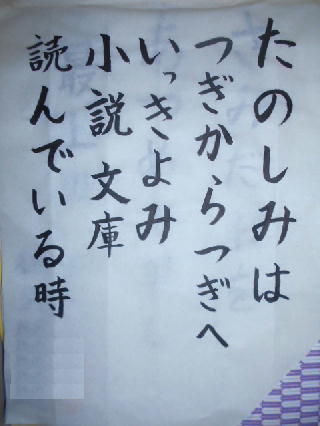 たのしみは
つぎからつぎへ
いっきよみ
小説文庫
読んでいる時